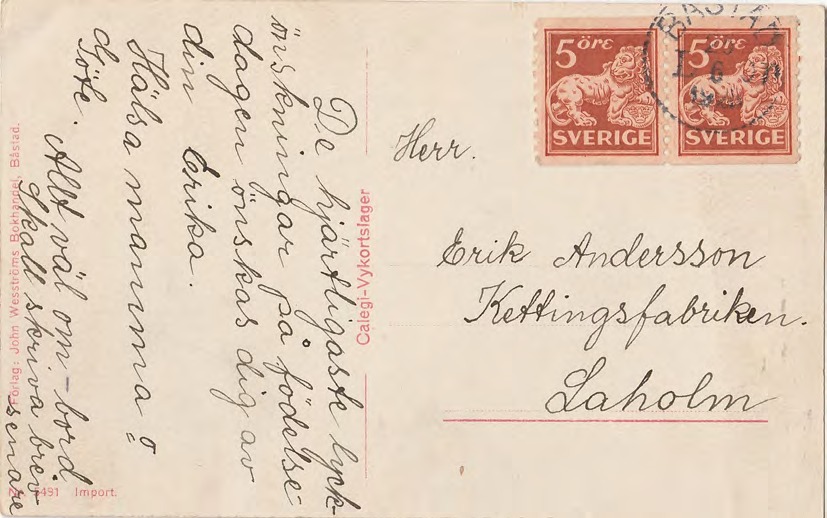 De hjärtligaste lyck-
önskningar på födelse
dagen önskas dig av
din Erika.
Hälsa mamma o
Göte. Allt väl om-bord
Skall skriva brev
senare
Förlag: John Wesströms Bokhandel, Båstad.
5491 Import.
Calegi-Vykortslager
5 öre
SVERIGE
5 öre
SVERIGE
BÅSTAD
6
Herr.
Erik Andersson
Kettingsfabriken.
Laholm